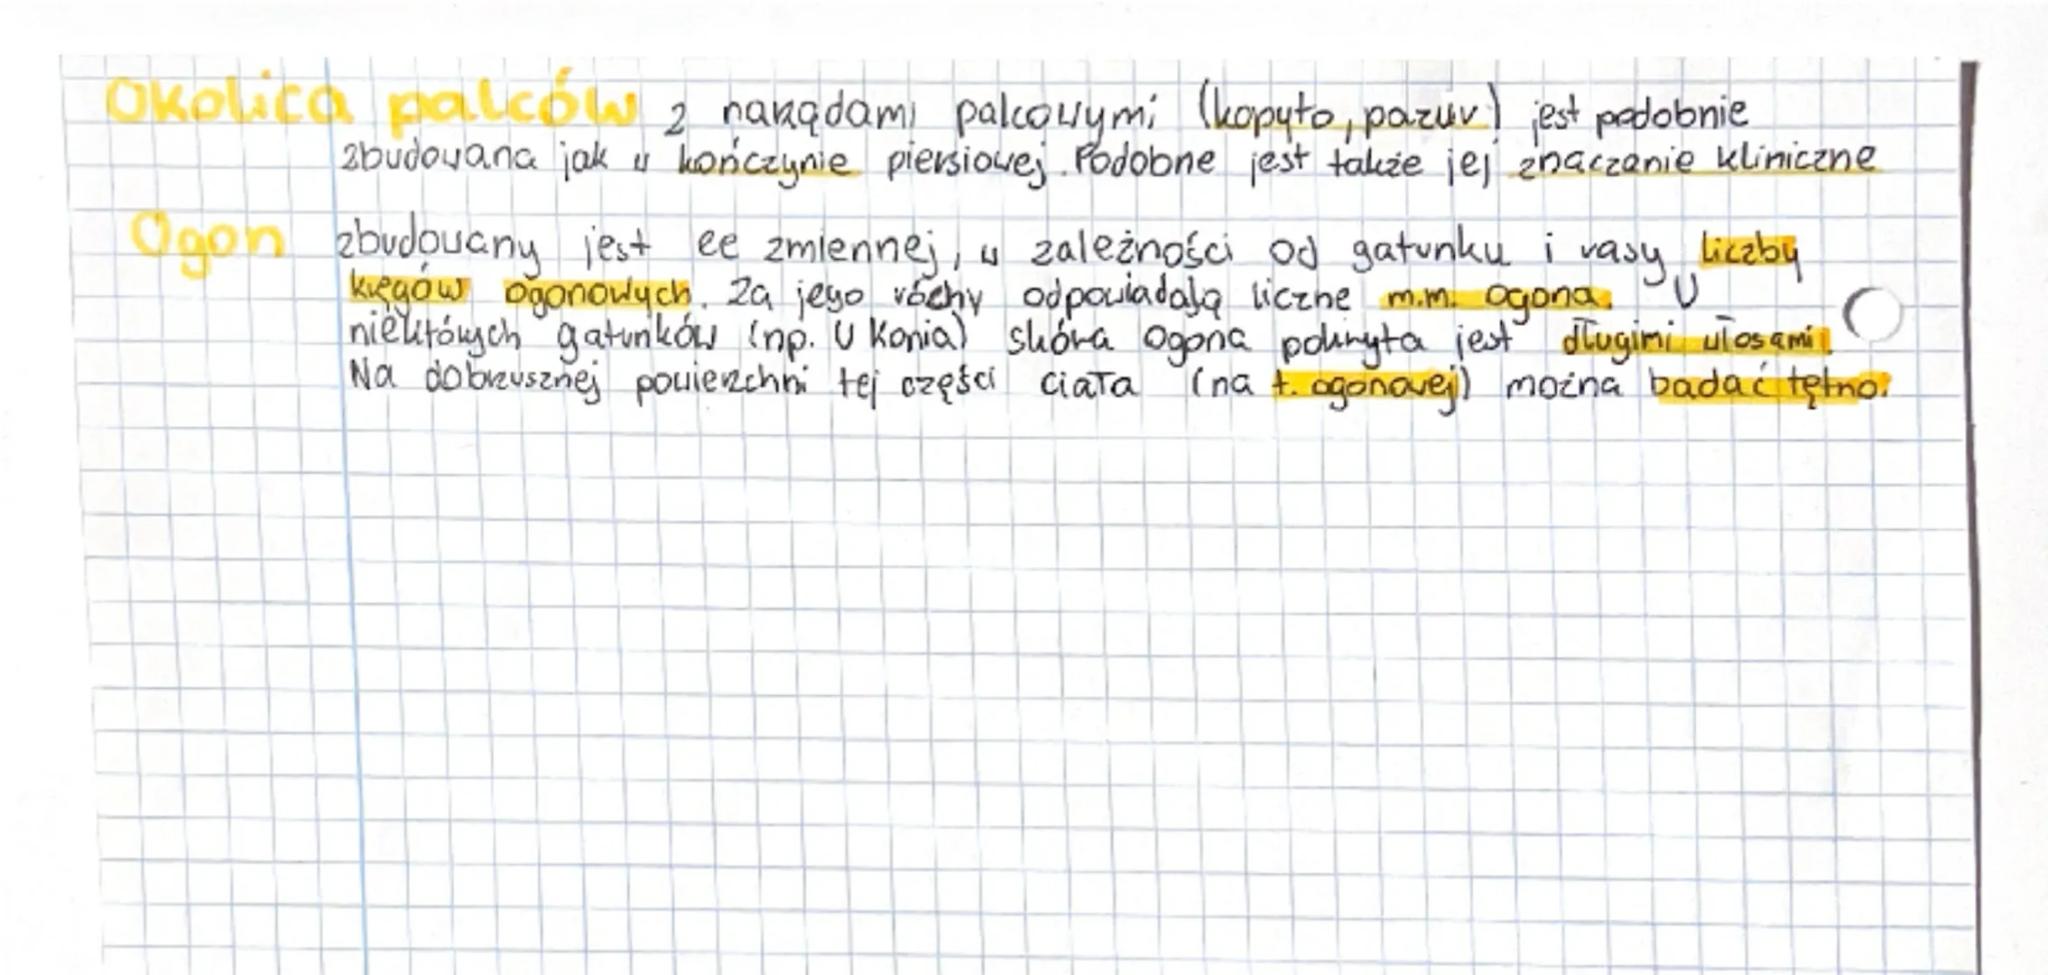 Okolica palców z narządami palcowymi (kopyto, pazur) jest podobnie
zbudowana jak w kończynie piersiowej. Podobne jest także jej znaczenie kliniczne
Ogon zbudowany jest ze zmiennej, w zależności od gatunku i rasy liczby
kręgów ogonowych. Za jego ruchy odpowiadają liczne m.m. ogona. U
niektórych gatunków (np. U Konia) skóra Ogona pokryta jest długimi włosami.
Na dobrzusznej powierzchni tej części ciała (na t. ogonowej) można badać tętno.